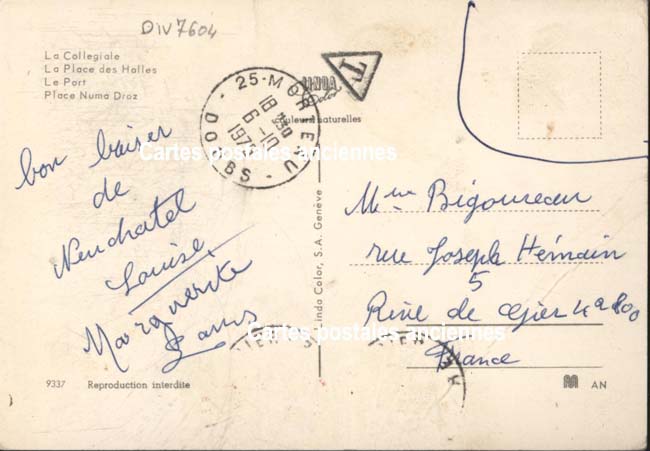 DIV7604
La Collegiale
La Place des Halles
Le Port
Place Numa Droz
25-MORTEAU
18H30
6-10
197
DOUBS
T
LINDA
Color
Couleurs naturelles
Cartes postales anciennes
bon baiser
de
Neuchatel
Louise,
Marguerite
Linda Color, S.A. Genève
Mme Bigoureau
rue Joseph Hémain
5
Rive de Gier 42800
France
Cartes postales anciennes
9337 Reproduction interdite
M AN